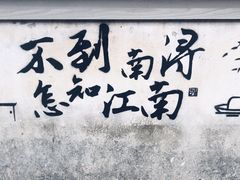 不到南浔
怎知江南